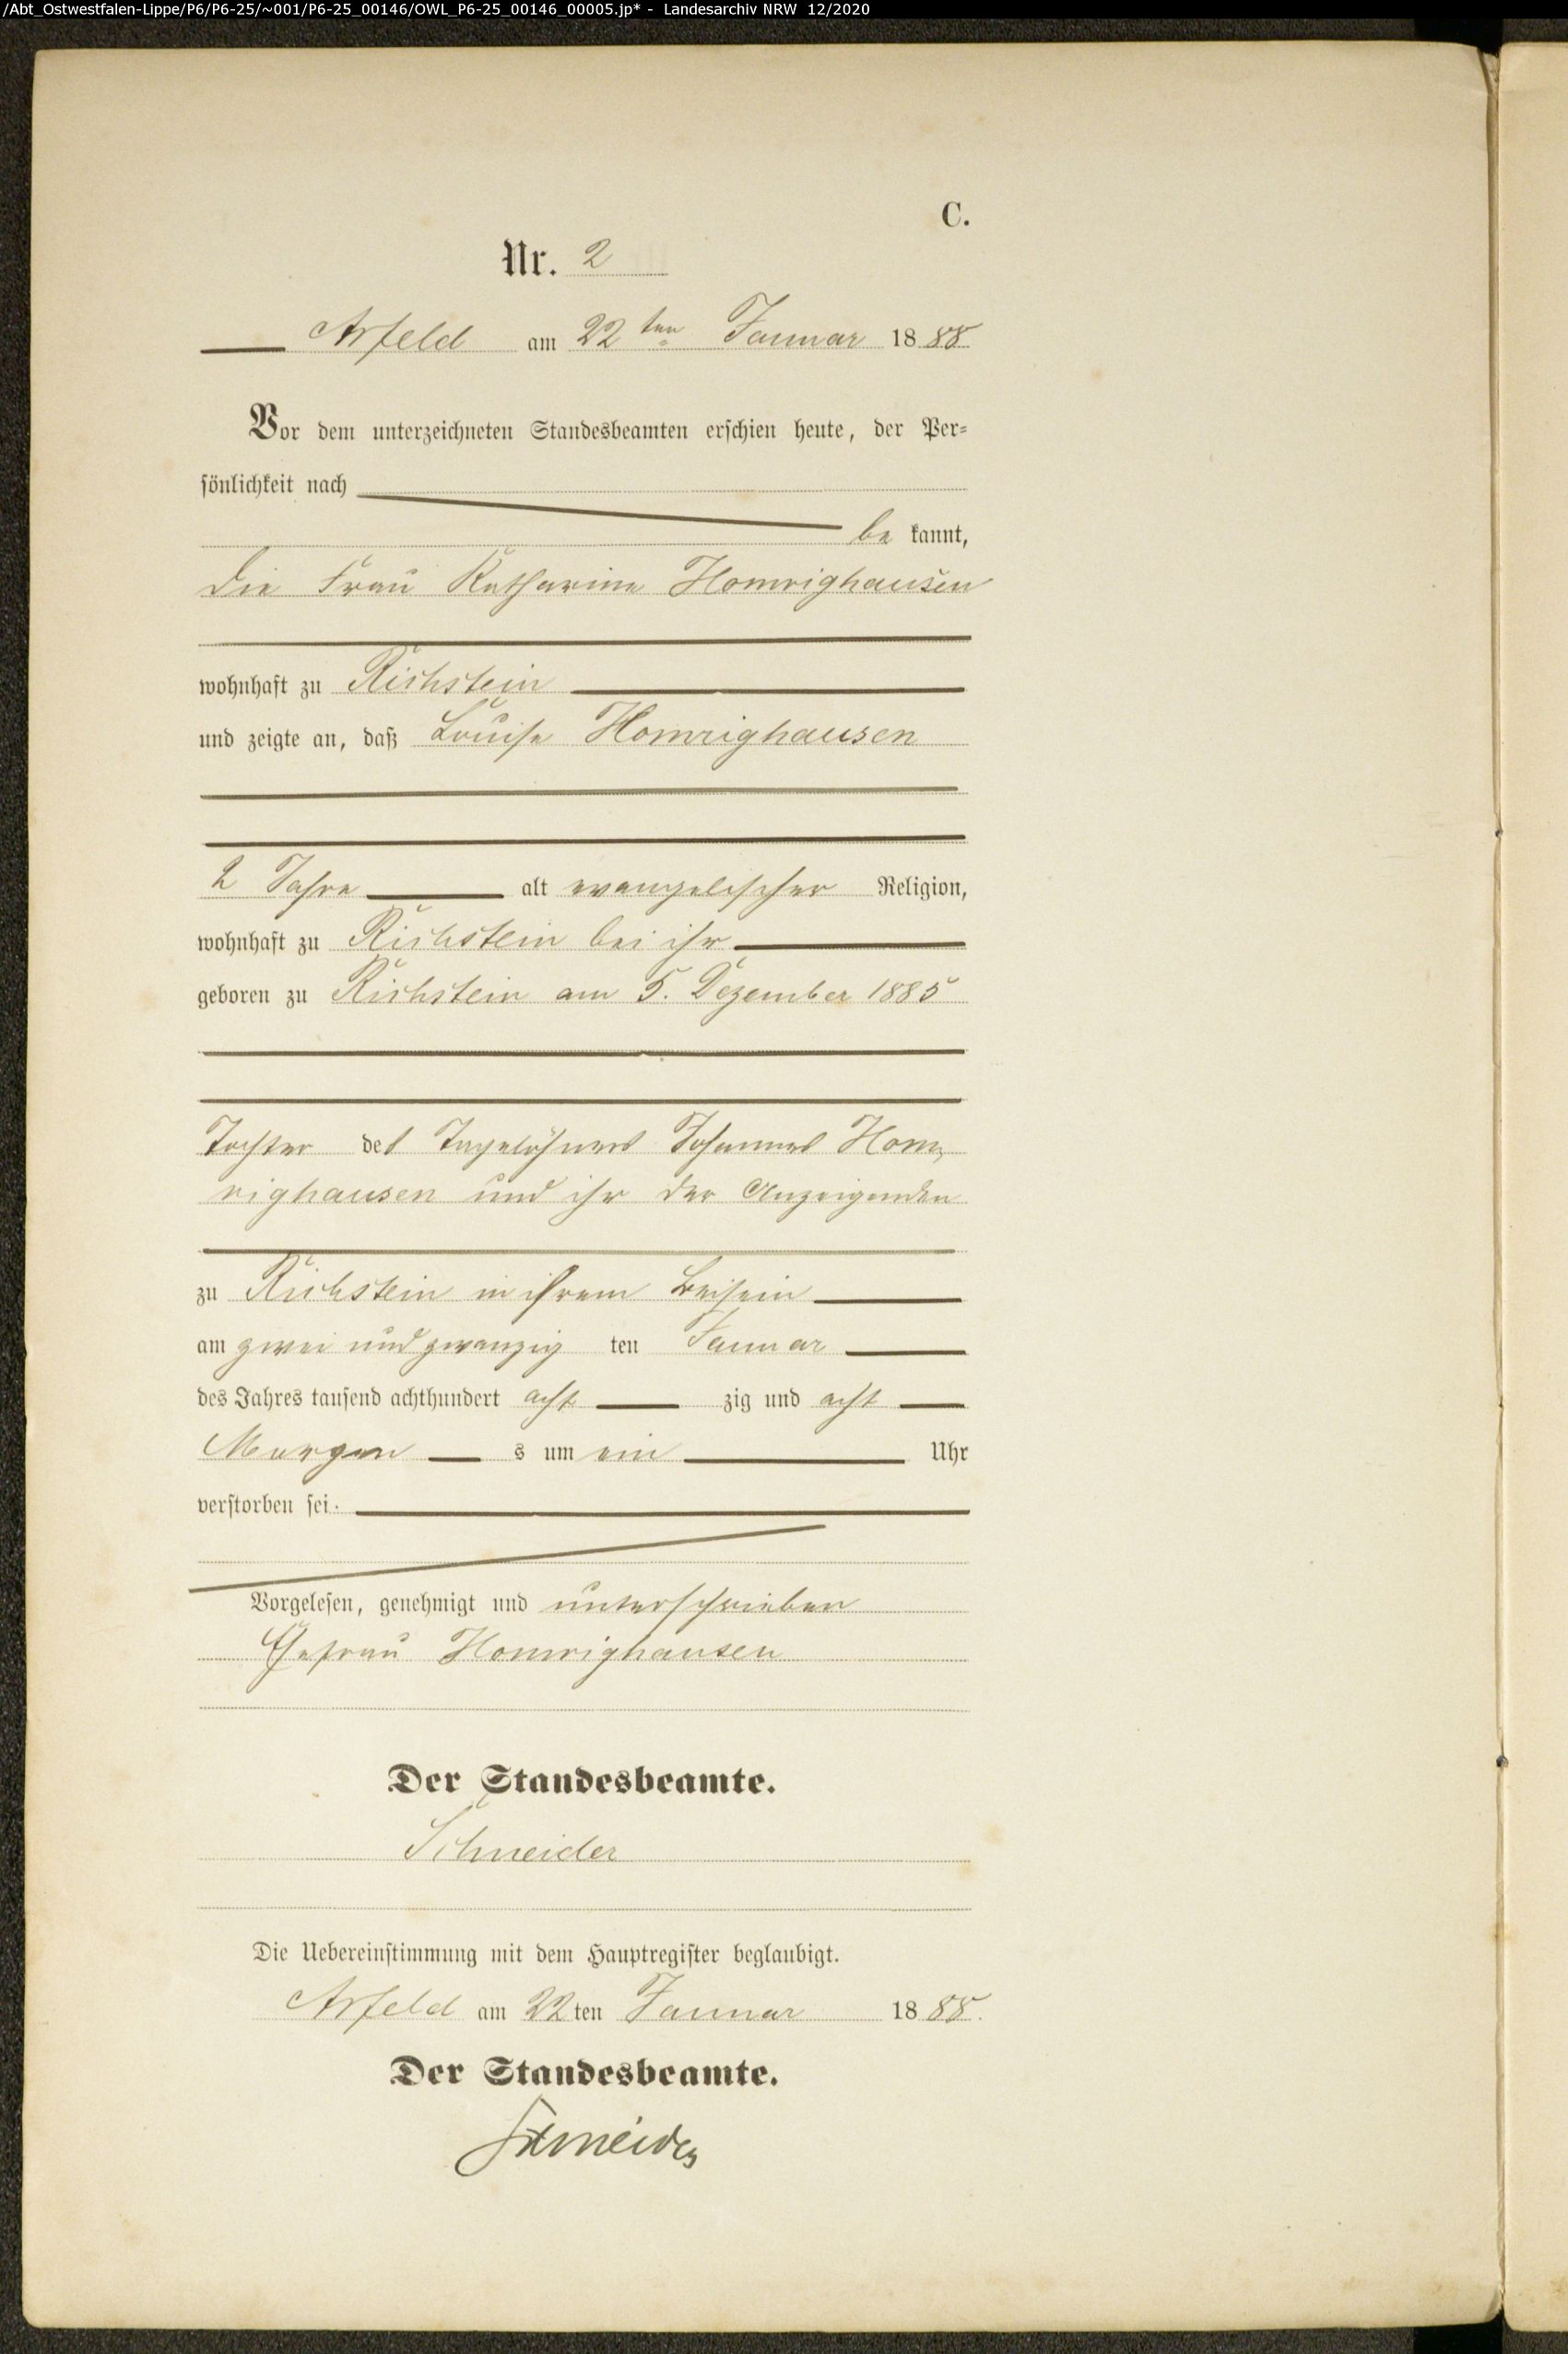 /Abt_Ostwestfalen-Lippe/P6/P6-25/~001/P6-25_00146/OWL_P6-25_00146_00005.jp* - Landesarchiv NRW 12/2020
C.
Nr. 2
Arfeld am 22ten Januar 1888
Vor dem unterzeichneten Standesbeamten erschien heute, der Per-
sönlichkeit nach
be kannt,
die Frau Katharina Homrighausen
wohnhaft zu Richstein
und zeigte an, daß Louise Homrighausen
2 Jahre alt evangelischer Religion,
wohnhaft zu Richstein bei ihr
geboren zu Richstein am 5. Dezember 1885
Tochter des Tagelöhners Johannes Hom-
righausen und ihr der Anzeigenden
zu Richstein in ihrem Beisein
am zwei und zwanzig ten Januar
des Jahres tausend achthundert acht zig und acht
Morgen s um ein Uhr
verstorben sei.
Vorgelesen, genehmigt und unterschrieben
Ehefrau Homrighausen
Der Standesbeamte.
Schneider
Die Uebereinstimmung mit dem Hauptregister beglaubigt.
Arfeld am 22ten Januar 1888.
Der Standesbeamte.
Schneider